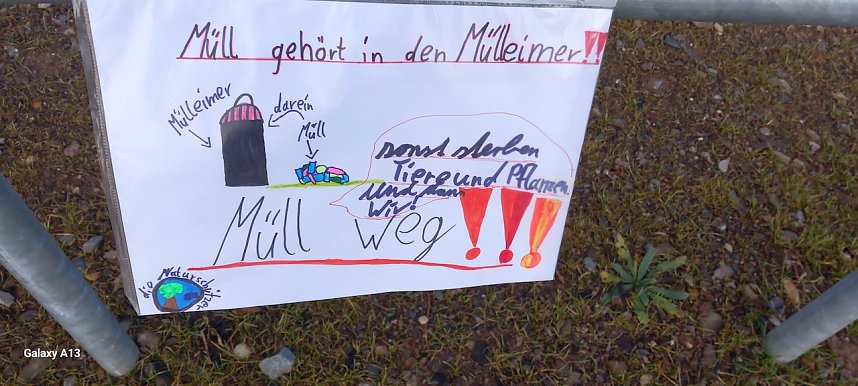 Müll gehört in den Mülleimer!!
Mülleimer
darein
Müll
sonst sterben
Tiere und Pflanzen
Und dann
Wir!
Müll weg!!!
die Naturschützer
Galaxy A13